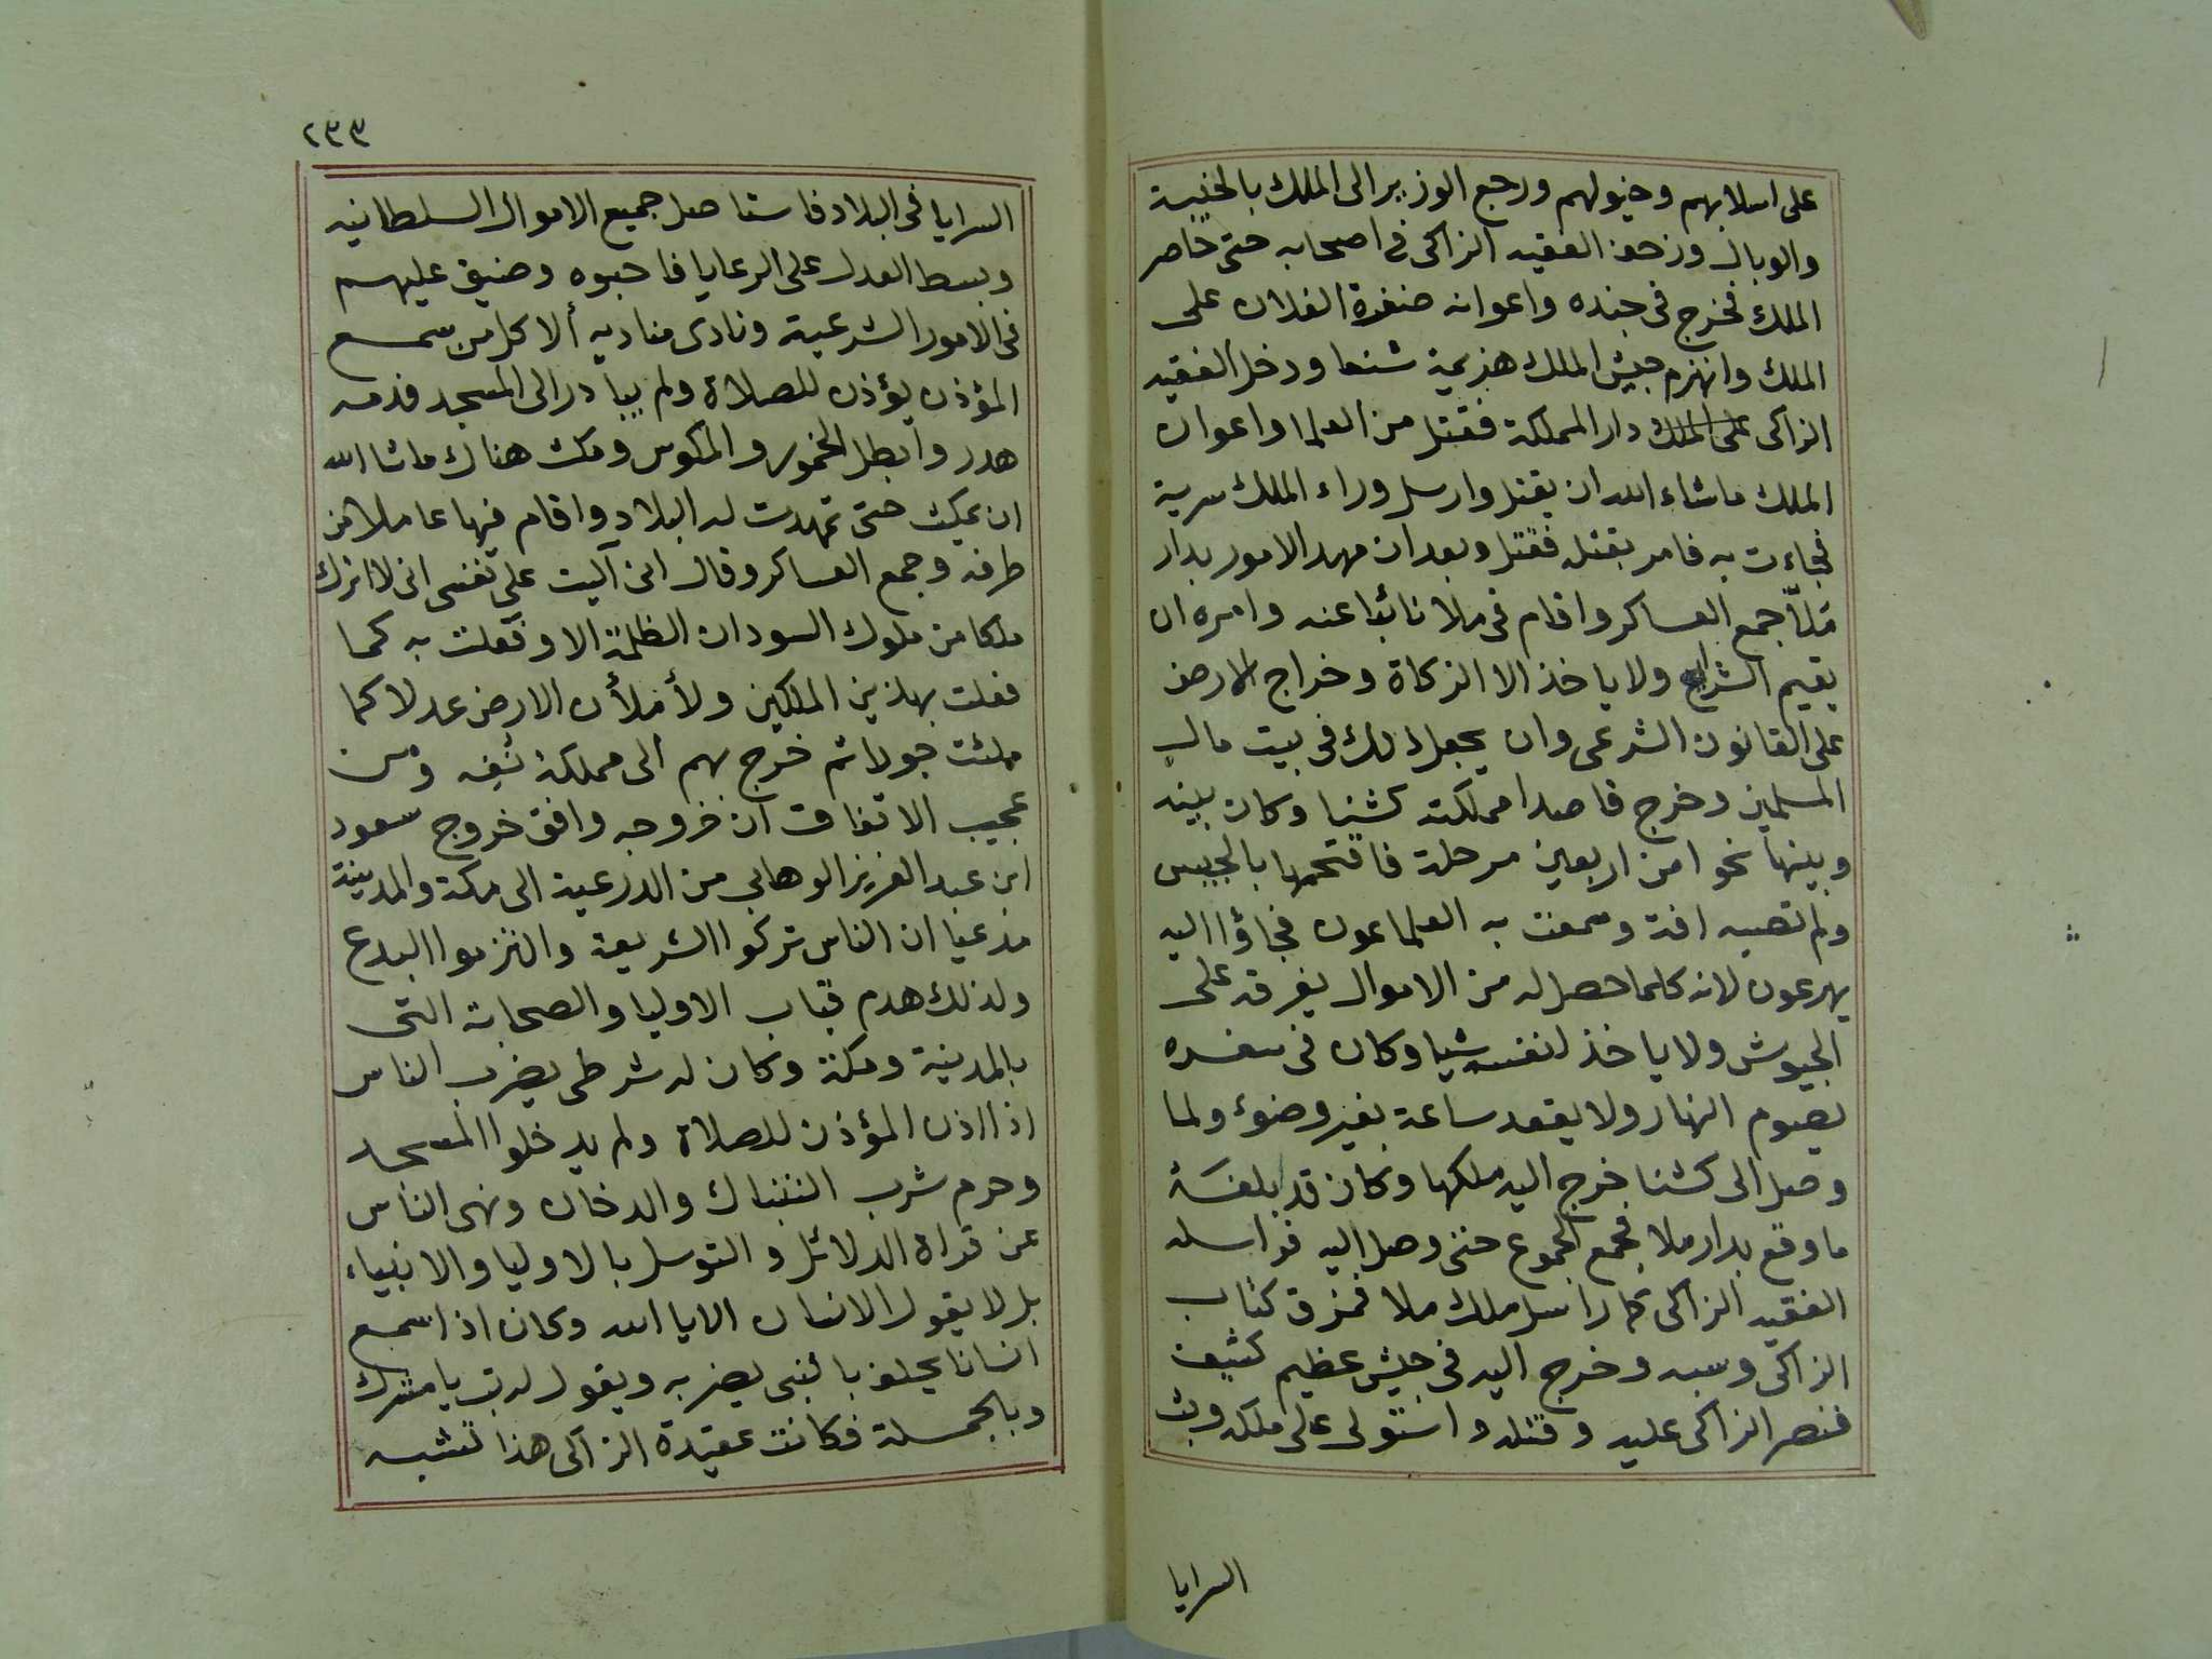 على اسلابهم وخيولهم ورجع الوزير الى الملك بالخيبة
والوبال وزحف الفقيه الزاكى فى اصحابه حتى حاصر
الملك فخرج فى جنده واعوانه الفلان على
الملك وانهزم جيش الملك هزيمة شنعا ودخل الفقيه
الزاكى على الملك دار المملكة فقتل من العلما واعوان
الملك ماشاء الله ان يقتل وارسل وراء الملك سرية
فجاءت به فامر بقتله فقتل وبعد ان مهد الامور بدار
مَلاّ جمع العساكر واقام فى ملا نائبا عنه وامره ان
يقيم الشرايع ولا ياخذ الا الزكاة وخراج الارض
على القانون الشرعى وان يجعل ذلك فى بيت مال
المسلمين وخرج قاصدا مملكته كشنا وكان بينه
وبينها نحوا من اربعين مرحلة فاقتحمها بالجيش
ولم تصبه افة وسمعت به العلماعون فجاؤا اليه
يهرعون لانه كلما حصل له من الاموال يفرقه على
الجيوش ولا ياخذ لنفسه شيا وكان فى سفره
يصوم النهار ولا يقعد ساعة بغير وضوء ولما
وصل الى كشنا خرج اليه ملكها وكان قد بلغه
ما وقع بدار ملا فجمع الجموع حتى وصل اليه فراسله
الفقيه الزاكى كما راسل ملك ملا فمزق كتاب
الزاكى وسبه وخرج اليه فى جيش عظيم كثيف
فنصر الزاكى عليه وقتله واستولى على ملكه وبث
السرايا
٢٣٣
السرايا فى البلاد فاستاصل جميع الاموال السلطانيه
وبسط العدل على الرعايا فاحبوه وضيق عليهم
فى الامور الشرعية ونادى مناديه ألا كل من سمع
المؤذن يؤذن للصلاة ولم يبادر الى المسجد فدمه
هدر وابطل الخمور والمكوس ومكث هناك ماشا الله
ان يمكث حتى تمهدت له البلاد واقام فيها عاملا من
طرفه وجمع العساكر وقال انى آليت على نفسى انى لا اترك
ملكا من ملوك السودان الظلمة الا وفعلت به كما
فعلت بهاذين الملكين ولأملأن الارض عدلا كما
ملئت جورا ثم خرج بهم الى مملكة نُفِه ومن
عجيب الاتفاق ان خروجه وافق خروج سعود
ابن عبد العزيز الوهابى من الدرعية الى مكة والمدينة
مدعيا ان الناس تركوا الشريعة والتزموا البدع
ولذلك هدم قباب الاوليا والصحابة التى
بالمدينة ومكة وكان له شرطى يضرب الناس
اذا اذن المؤذن للصلاة ولم يدخلوا المسجد
وحرم شرب التنباك والدخان ونهى الناس
عن قراة الدلائل والتوسل بالاوليا والانبياء
بل لا يقول الانسان الا يا الله وكان اذا سمع
انسانا يحلف بالنبى يضربه ويقول له تب يا مشرك
وبالجملة فكانت عقيدة الزاكى هذا تشبه